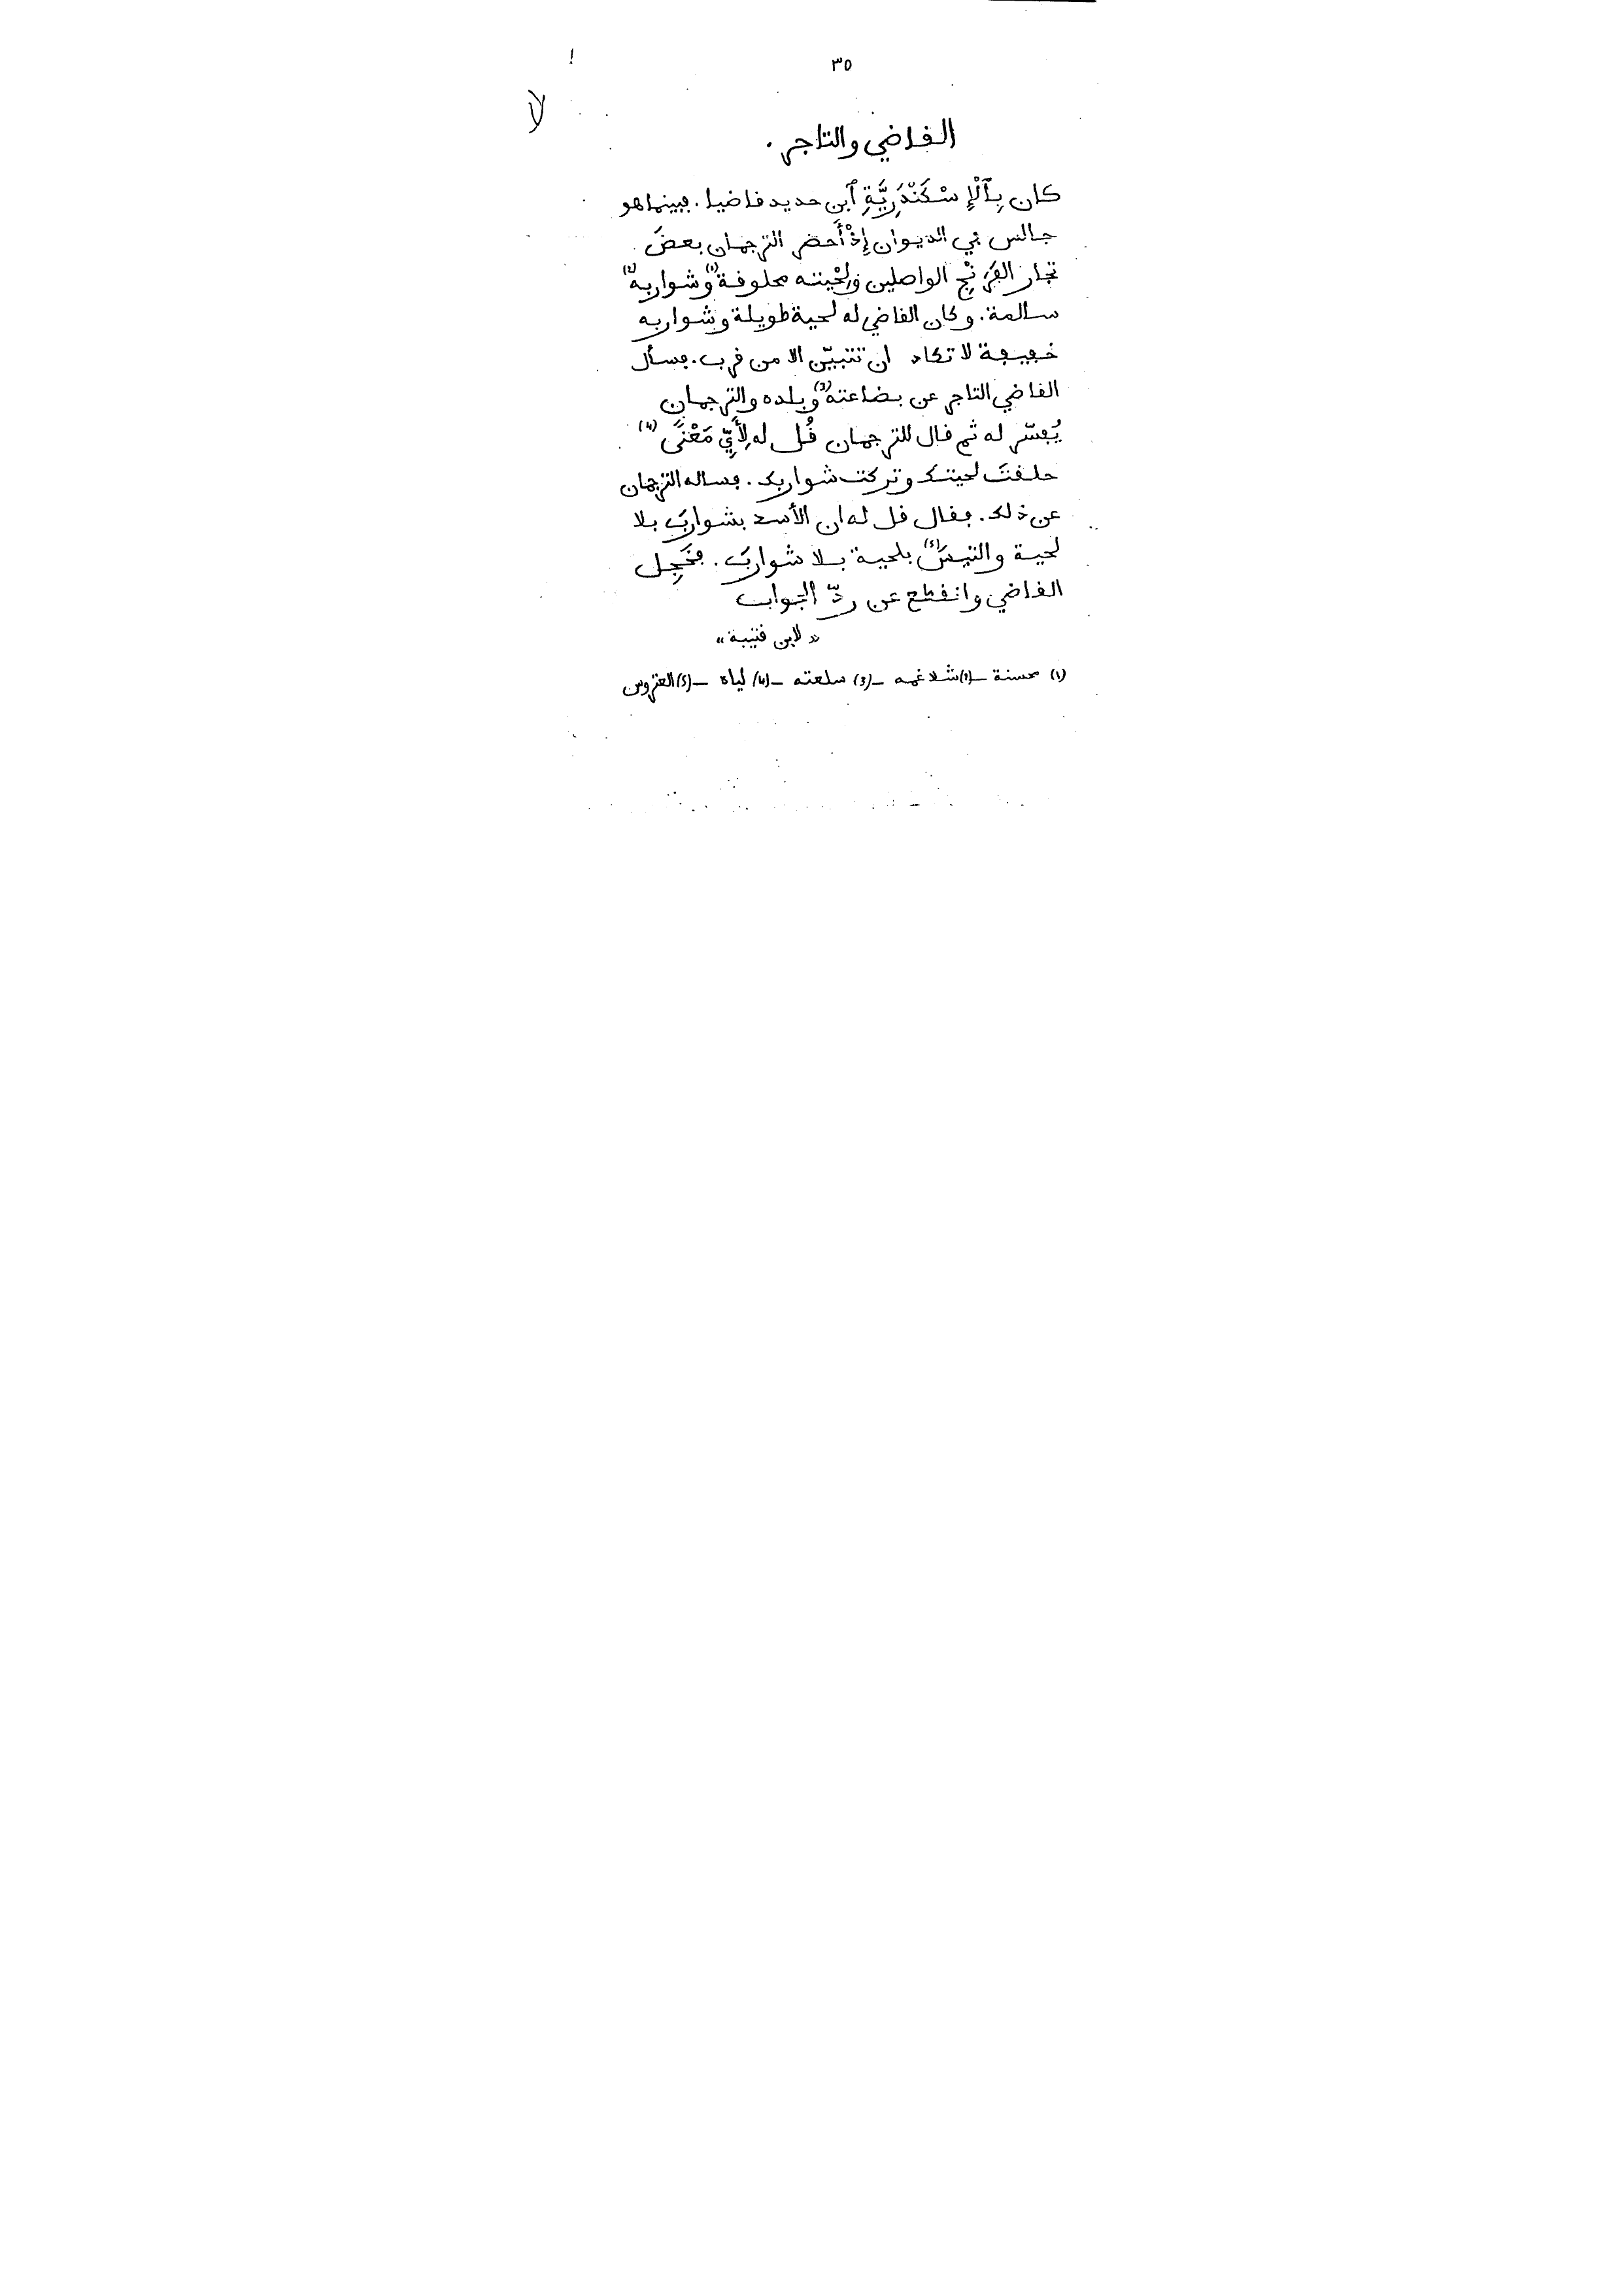 ٣٥
لا
الفاضي والتاجر.
كان بِٱلْإِسْكَنْدَرِيَّةِ ٱبن حديد فاضيا. ڢبينما هو
جالس ڢي الديوان إِذْ أَحضر الترجمان بعضَ
تجار الڢرنْجِ الواصلين وَلِحْيته محلوفة (١) وشواربه (٢)
سالمة. وكان الفاضي له لحية طويلة وشواربه
خڢيڢة لا تكاد ان تتبيّن الا من فرب. ڢسأل
الفاضي التاجر عن بضاعته (3) وبلده والترجمان
يُڢسّر له ثم فال للترجمان فُل له لِأَيِّ مَعْنًى (4)
حلفتَ لحيتك وتركت شواربك. ڢساله الترجمان
عن ذلك. ڢفال فل له ان الأسد بشوارب بلا
لحية والتيس (5) بلحية بلا شوارب. ڢخَجِل
الفاضي وانفطع عن ردّ الجواب
« لابن فتيبة »
(١) محسنة – (٢) شلاغمه – (3) سلعته – (4) لياه – (5) العتروس